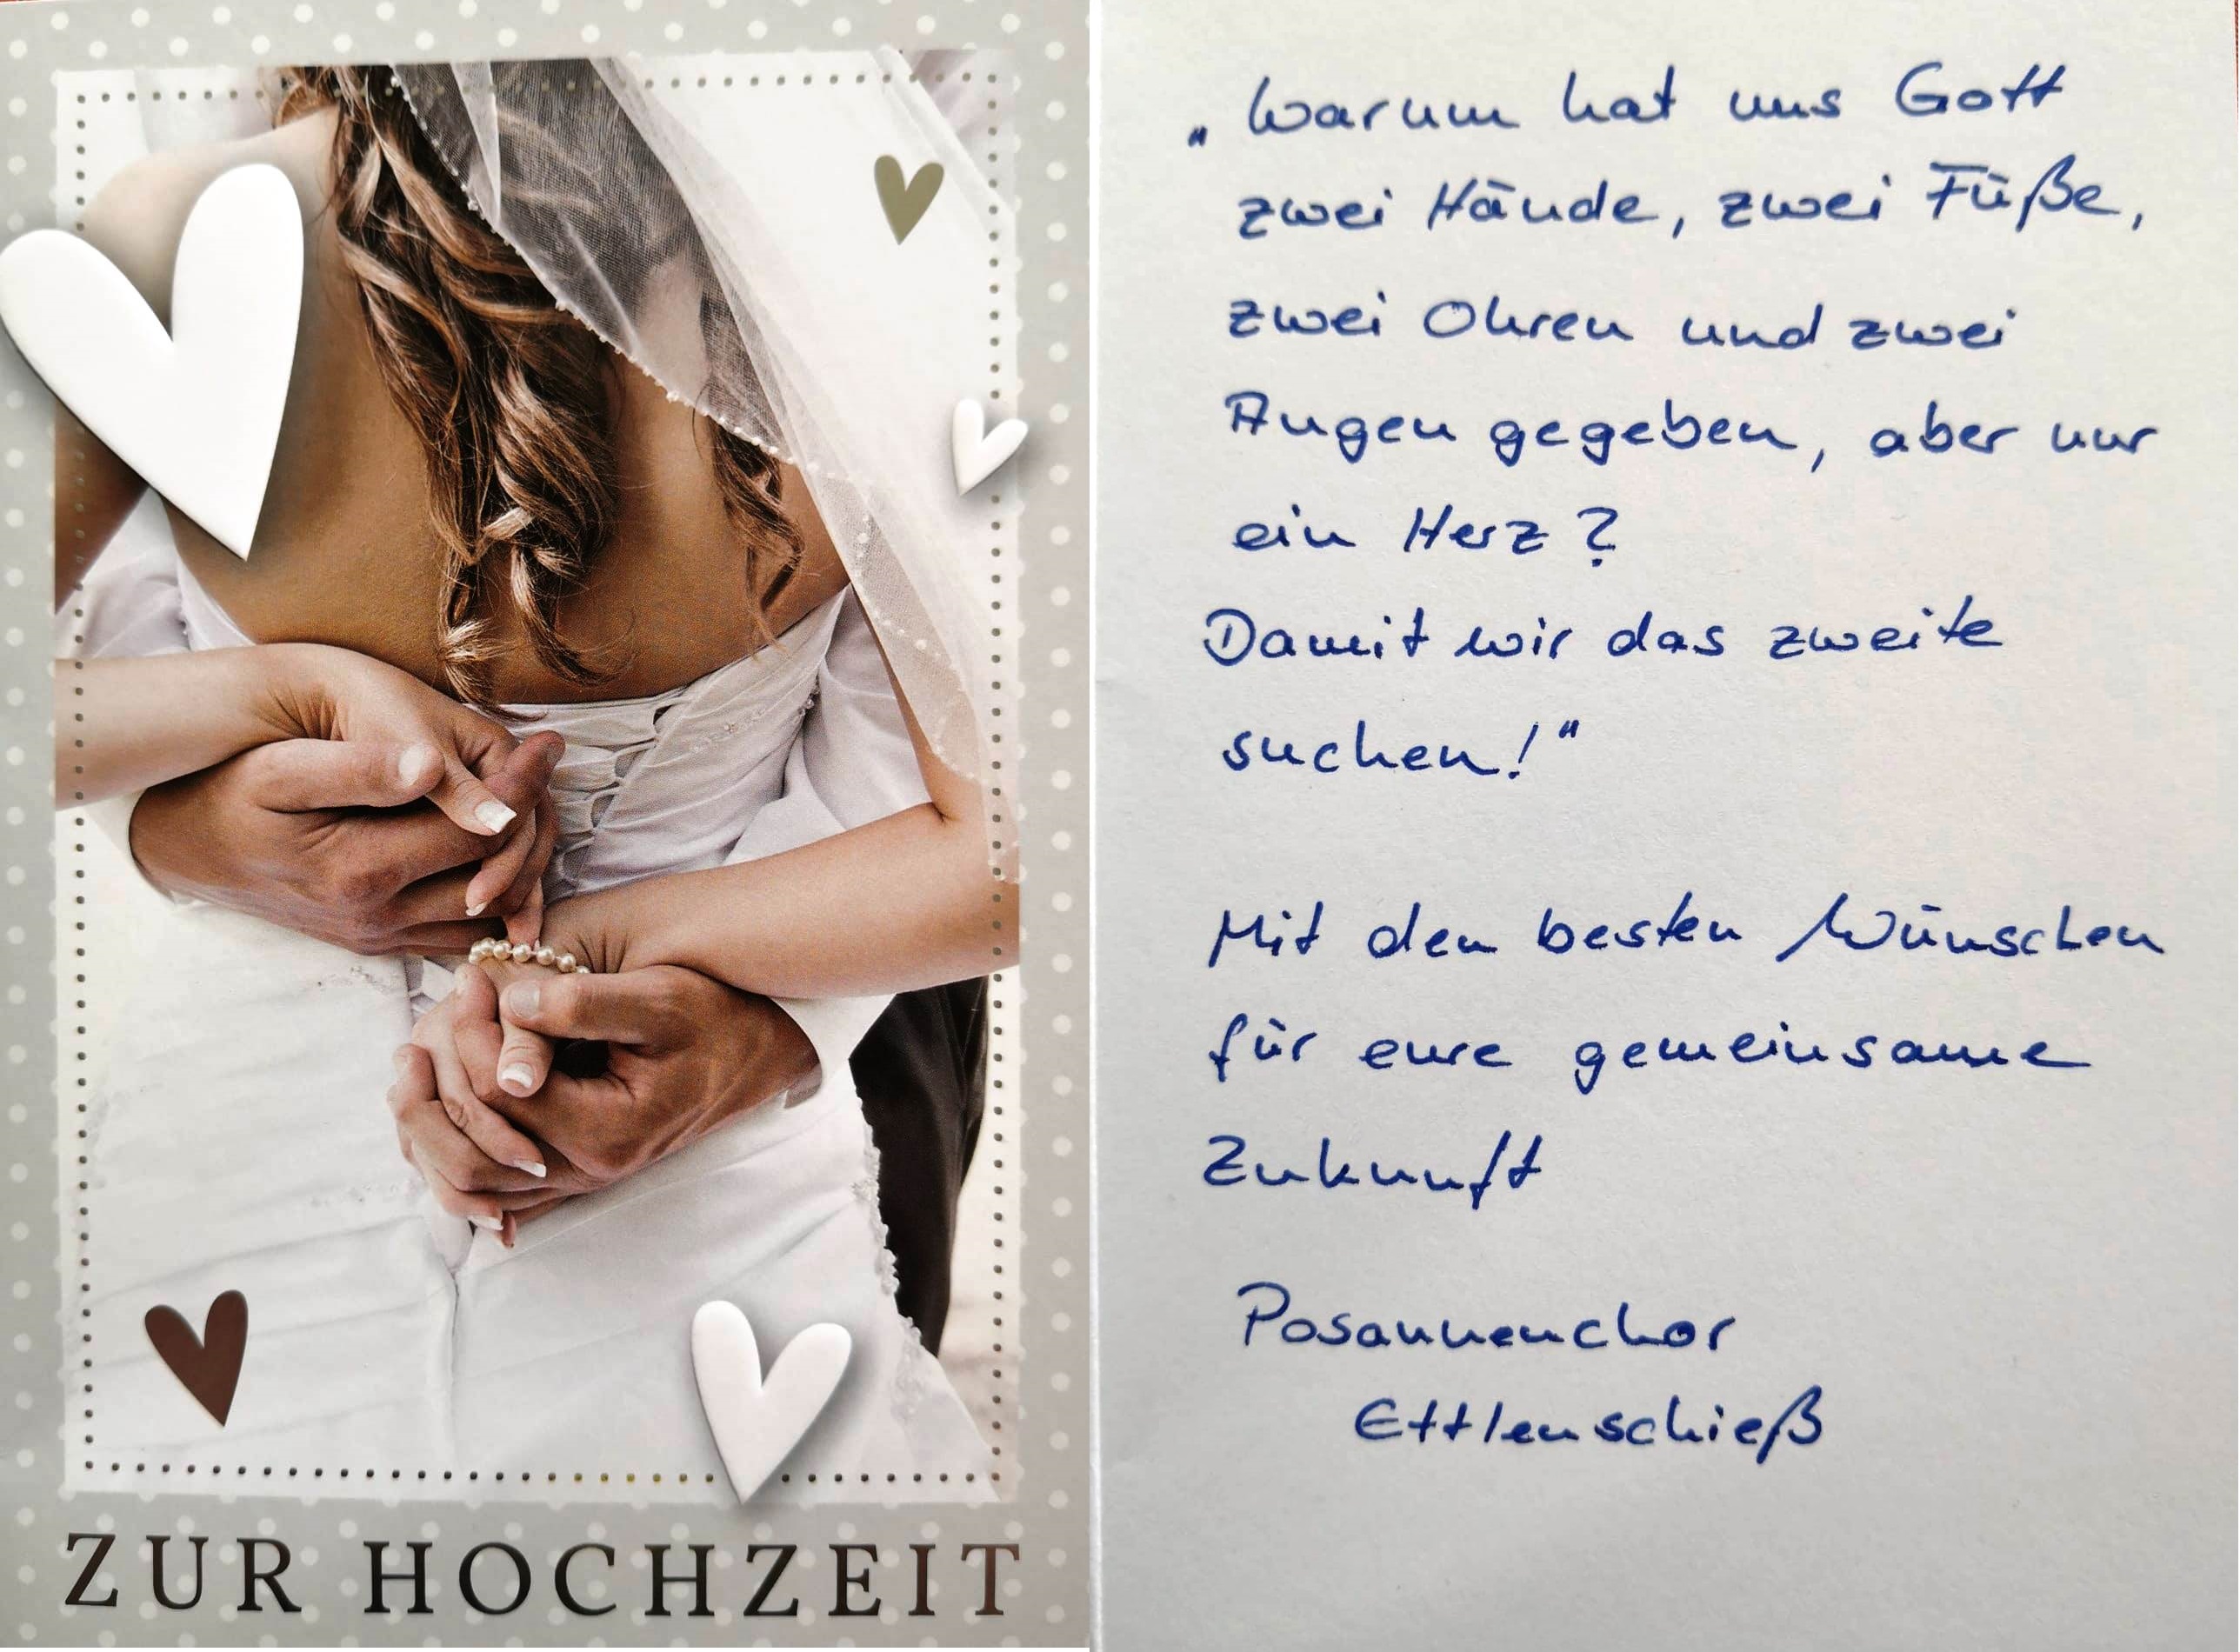 ZUR HOCHZEIT
„Warum hat uns Gott
zwei Hände, zwei Füße,
zwei Ohren und zwei
Augen gegeben, aber nur
ein Herz?
Damit wir das zweite
suchen!“
Mit den besten Wünschen
für eure gemeinsame
Zukunft
Posaunenchor
Ettlenschieß